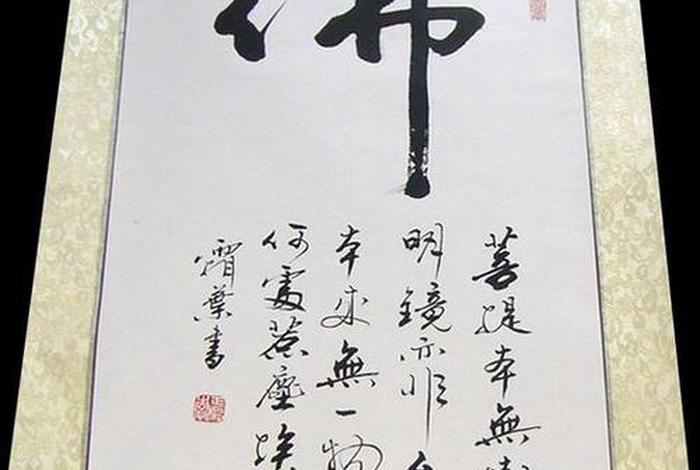 佛
菩提本無樹
明鏡亦非
本來無一物
何處惹塵埃
霜葉書